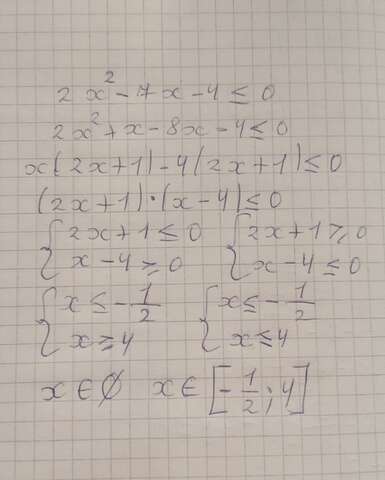 2x² - 7x - 4 ≤ 0
2x² + x - 8x - 4 ≤ 0
x(2x+1) - 4(2x+1) ≤ 0
(2x+1)·(x-4) ≤ 0
{2x+1 ≤ 0 {2x+1 ≥ 0
{x-4 ≥ 0 {x-4 ≤ 0
{x ≤ -1/2 {x ≤ -1/2
{x ≥ 4 {x ≤ 4
x ∈ ∅ x ∈ [-1/2; 4]